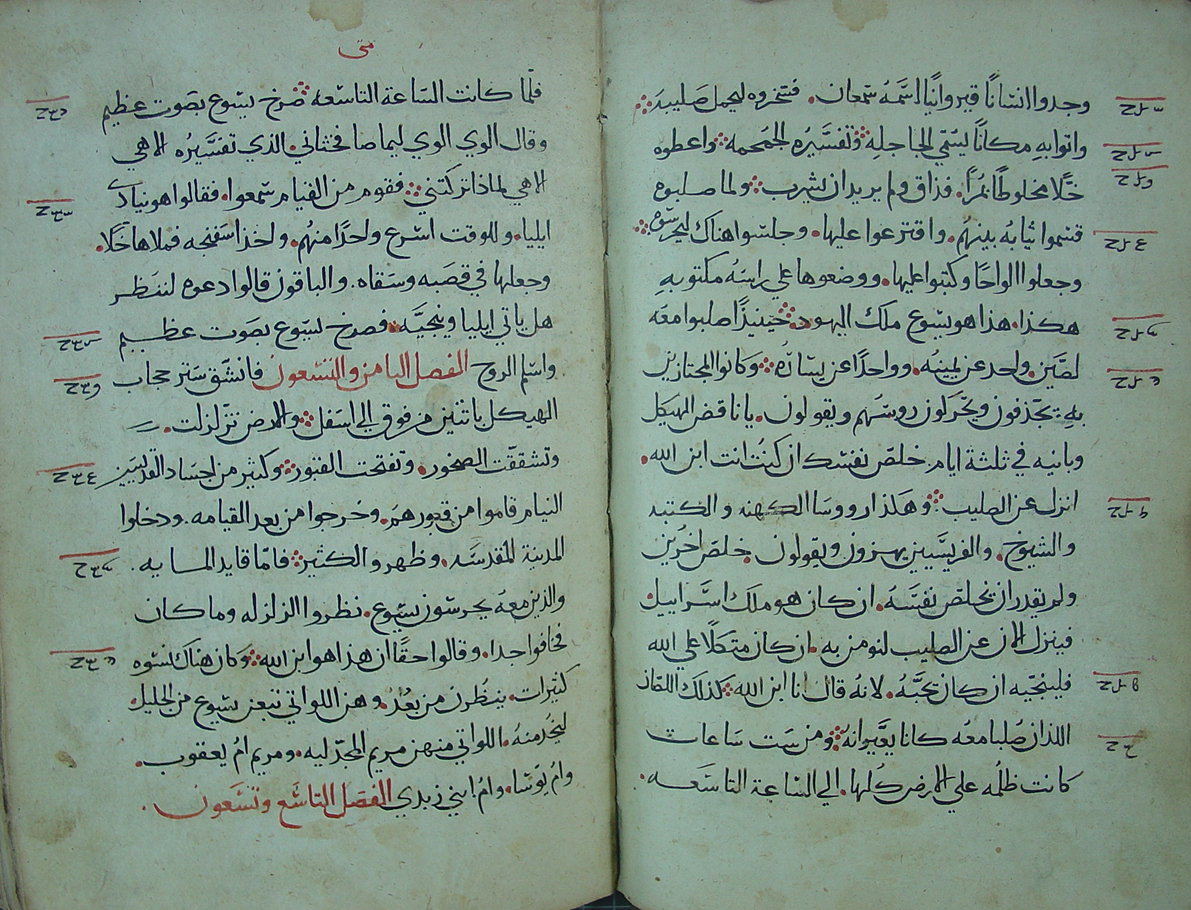 وجدوا انسانًا قيروانيًا اسمه سمعان. فسخروه ليحمل صليبه
واتوا به مكانًا يسمى الجاجله وتفسيره الجمجمه واعطوه
خلًا مخلوطًا بمرًا. فذاق ولم يريد ان يشرب ولما صلبوه
قسموا ثيابه بينهم. واقترعوا عليها. وجلسوا هناك ليحرسوه
وجعلوا الواحًا وكتبوا عليها. ووضعوها على راسه مكتوبه
هكذا. هذا هو يسوع ملك اليهود. حينيذًا صلبوا معه
لصّين. واحد عن يمينه. وواحدًا عن يساره وكانوا المجتازين
به. يجذفون ويحركون روسهم ويقولون. يا ناقض الهيكل
وبانيه في ثلثة ايام. خلص نفسك ان كنت انت ابن الله.
انزل عن الصليب وهكذا روسا الكهنه والكتبه
والشيوخ. والفريسيين يهزون ويقولون. خلص اخرين
ولم يقدر ان يخلص نفسه. ان كان هو ملك اسراييل
فينزل الان عن الصليب لنومن به. ان كان متكلًا على الله
فلينجيه ان كان يحبه. لانه قال انا ابن الله كذلك اللصان
اللذان صلبا معه كانا يعيرانه ومن ست ساعات
كانت ظلمه على الارض كلها. الى الساعة التاسعه.
متى
فلما كانت الساعة التاسعه صرخ يسوع بصوت عظيم
وقال الوي الوي ليما صافختاني. الذي تفسيره الاهي
الاهي لماذا تركتني فقوم من القيام سمعوا. فقالوا هو ينادي
ايليا. وللوقت اسرع واحدًا منهم. واخذ اسفنجه فملاها خلًا.
وجعلها في قصبه وسقاه. والباقون قالوا دعوه لننظر
هل ياتي ايليا وينجيه. فصرخ يسوع بصوت عظيم
واسلم الروح الفصل الثامن والتسعون فانشق ستر حجاب
الهيكل باثنين من فوق الى اسفل والارض تزلزلت.
وتشققت الصخور. وتفتحت القبور وكثير من اجساد القديسين
النيام قاموا من قبورهم. وخرجوا من بعد القيامه. ودخلوا
المدينة المقدسه. وظهروا لكثير فاما قايد المايه.
والذين معه يحرسون يسوع. نظروا الزلزله وما كان
فخافوا جدا. وقالوا حقًا ان هذا هو ابن الله وكان هناك نسوه
كثيرات. ينظرن من بُعد. وهن اللواتي تبعن يسوع من الجليل
ليخدمنه. اللواتي منهن مريم المجدليه. ومريم ام يعقوب.
وام يوسا. وام ابني زبدي الفصل التاسع وتسعون.